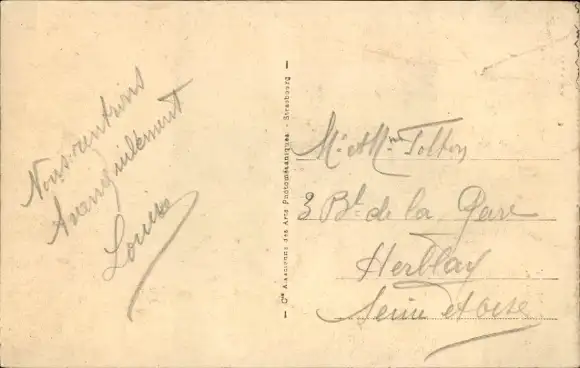 Nous rentrons
Louise
Cie Alsacienne des Arts Photomécaniques - Strasbourg
Mr et Mme Tolton
3 Bd de la Gare
Herblay
Seine et Oise